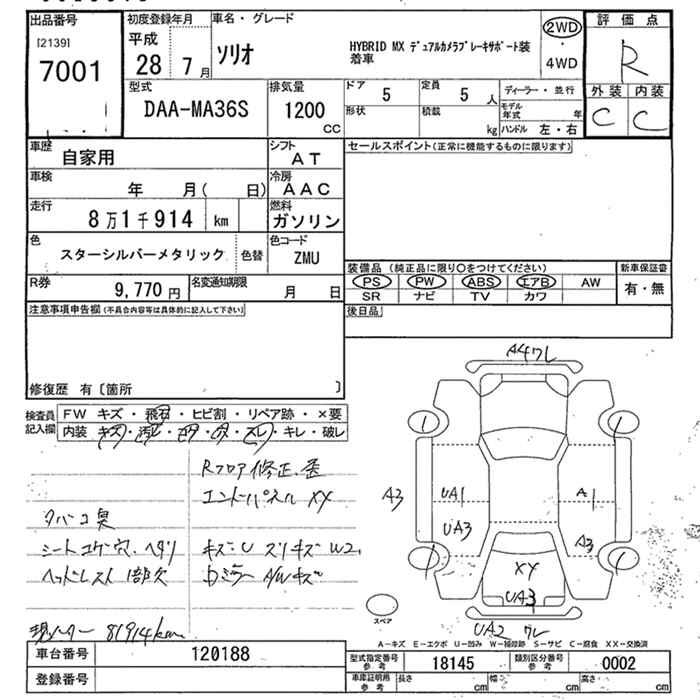 出品番号
[2139]
7001
初度登録年月
平成
28 7月
車名・グレード
ソリオ
HYBRID MX デュアルカメラブレーキサポート装
着車
2WD
・
4WD
評価点
R
外装 内装
C C
型式
DAA-MA36S
排気量
1200
CC
ドア
5
定員
5 人
形状
積載
kg
ディーラー・並行
モデル
年式 年
ハンドル 左・右
車歴
自家用
シフト
AT
車検
年 月( 日)
冷房
AAC
走行
8万1千914 km
燃料
ガソリン
色
スターシルバーメタリック
色替
色コード
ZMU
R券
9,770円
名変通知期限
月 日
セールスポイント(正常に機能するものに限ります)
装備品 (純正品に限り〇をつけてください)
PS PW ABS エアB AW
SR ナビ TV カワ
新車保証書
有・無
後日品
注意事項申告欄(不具合内容等は具体的に記入して下さい)
修復歴 有〔箇所 〕
検査員
記入欄
FW キズ・飛石・ヒビ割・リペア跡・×要
内装 キズ・汚レ・コゲ・穴・スレ・キレ・破レ
タバコ臭
シートコゲ穴、ヘタリ
ヘッドレスト1部欠
現メーター 81914km
Rフロア修正、歪
エンドパネルXY
キズ・U スリキズ W2
Dミラー A/Wキズ
A4ワレ
A3
UA1
UA3
A1
A3
XY
UA3
UA2 ワレ
スペア
A-キズ E-エクボ U-凹み W-補修跡 S-サビ C-腐食 XX-交換済
車台番号
120188
型式指定番号
参考
18145
類別区分番号
参考
0002
登録番号
車庫証明用
参考
長さ cm
幅 cm
高さ cm